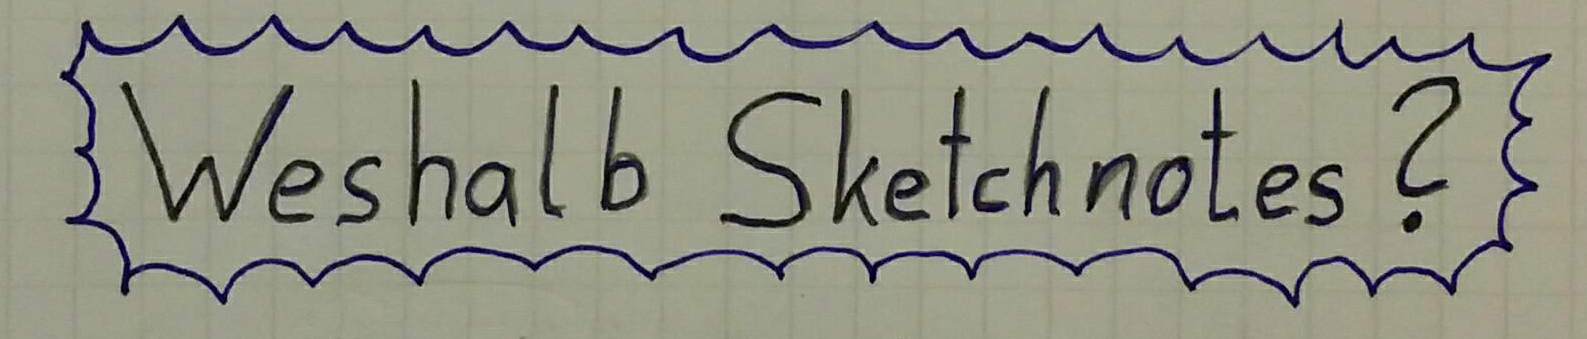 Weshalb Sketchnotes?